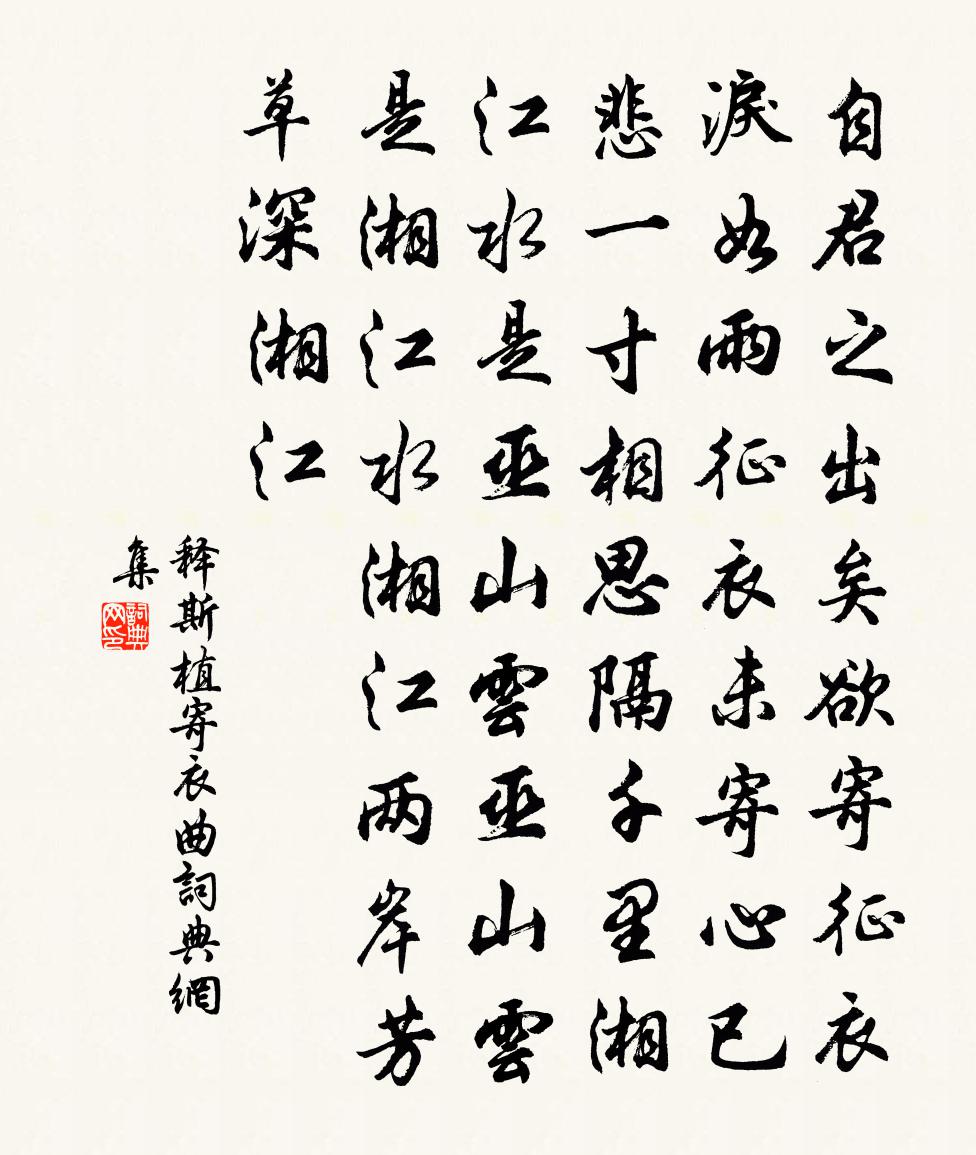 自君之出矣欲寄征衣
淚如雨征衣未寄心已
悲一寸相思隔千里湘
江水是巫山雲巫山雲
是湘江水湘江两岸芳
草深湘江
释斯植寄衣曲詞典網
集
詞典
网印